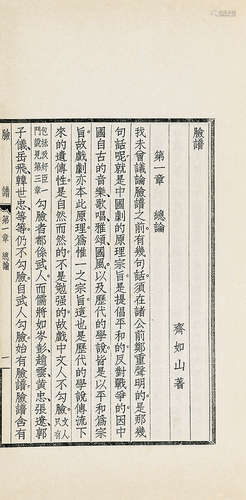 臉譜
齊如山著
第一章 總論
我未曾議論臉譜之前有幾句話須在諸公前鄭重聲明的是那幾
句話呢就是中國劇的原理宗旨是提倡平和的反對戰爭的因中
國自古的音樂歌唱雅頌國風以及歷代的學說皆是以平和爲宗
旨故戲劇亦本此原理爲惟一之宗旨這也是歷代的學說傳流下
來的遺傳性是自然而然的不是勉強的故戲中文人不勾臉文人只有
包拯及奸臣一門說見第三章勾臉者都係武人而儒將如岑彭趙雲黃忠張遼郭
子儀岳飛韓世忠等等仍不勾臉自武人勾臉始有臉譜臉譜含有
臉譜 第一章 總論 一